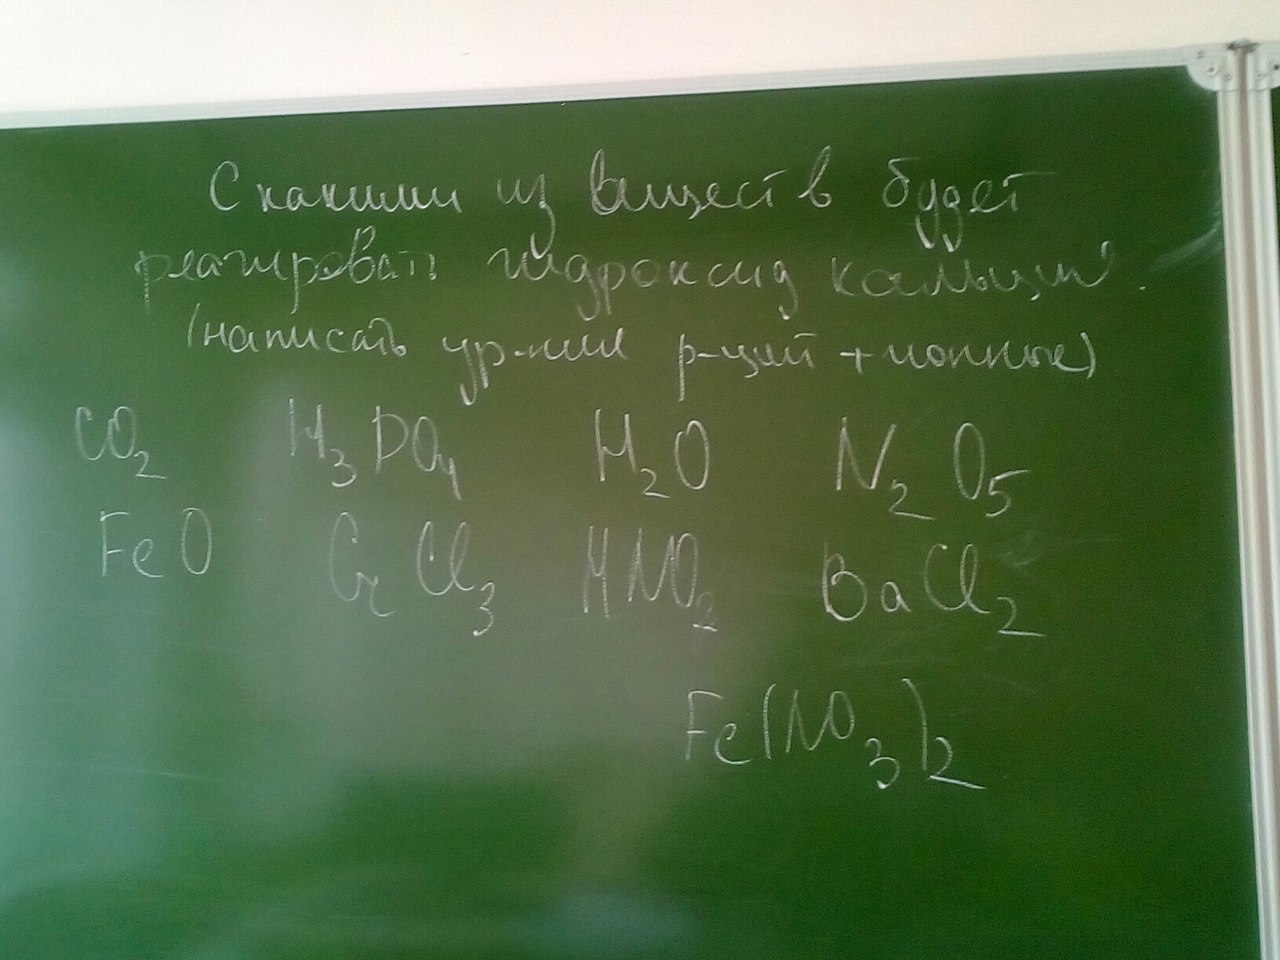 С какими из веществ будет
реагировать гидроксид кальция.
(написать ур-ния р-ций + ионные)
CO₂ H₃PO₄ H₂O N₂O₅
FeO CrCl₃ HNO₂ BaCl₂
Fe(NO₃)₂